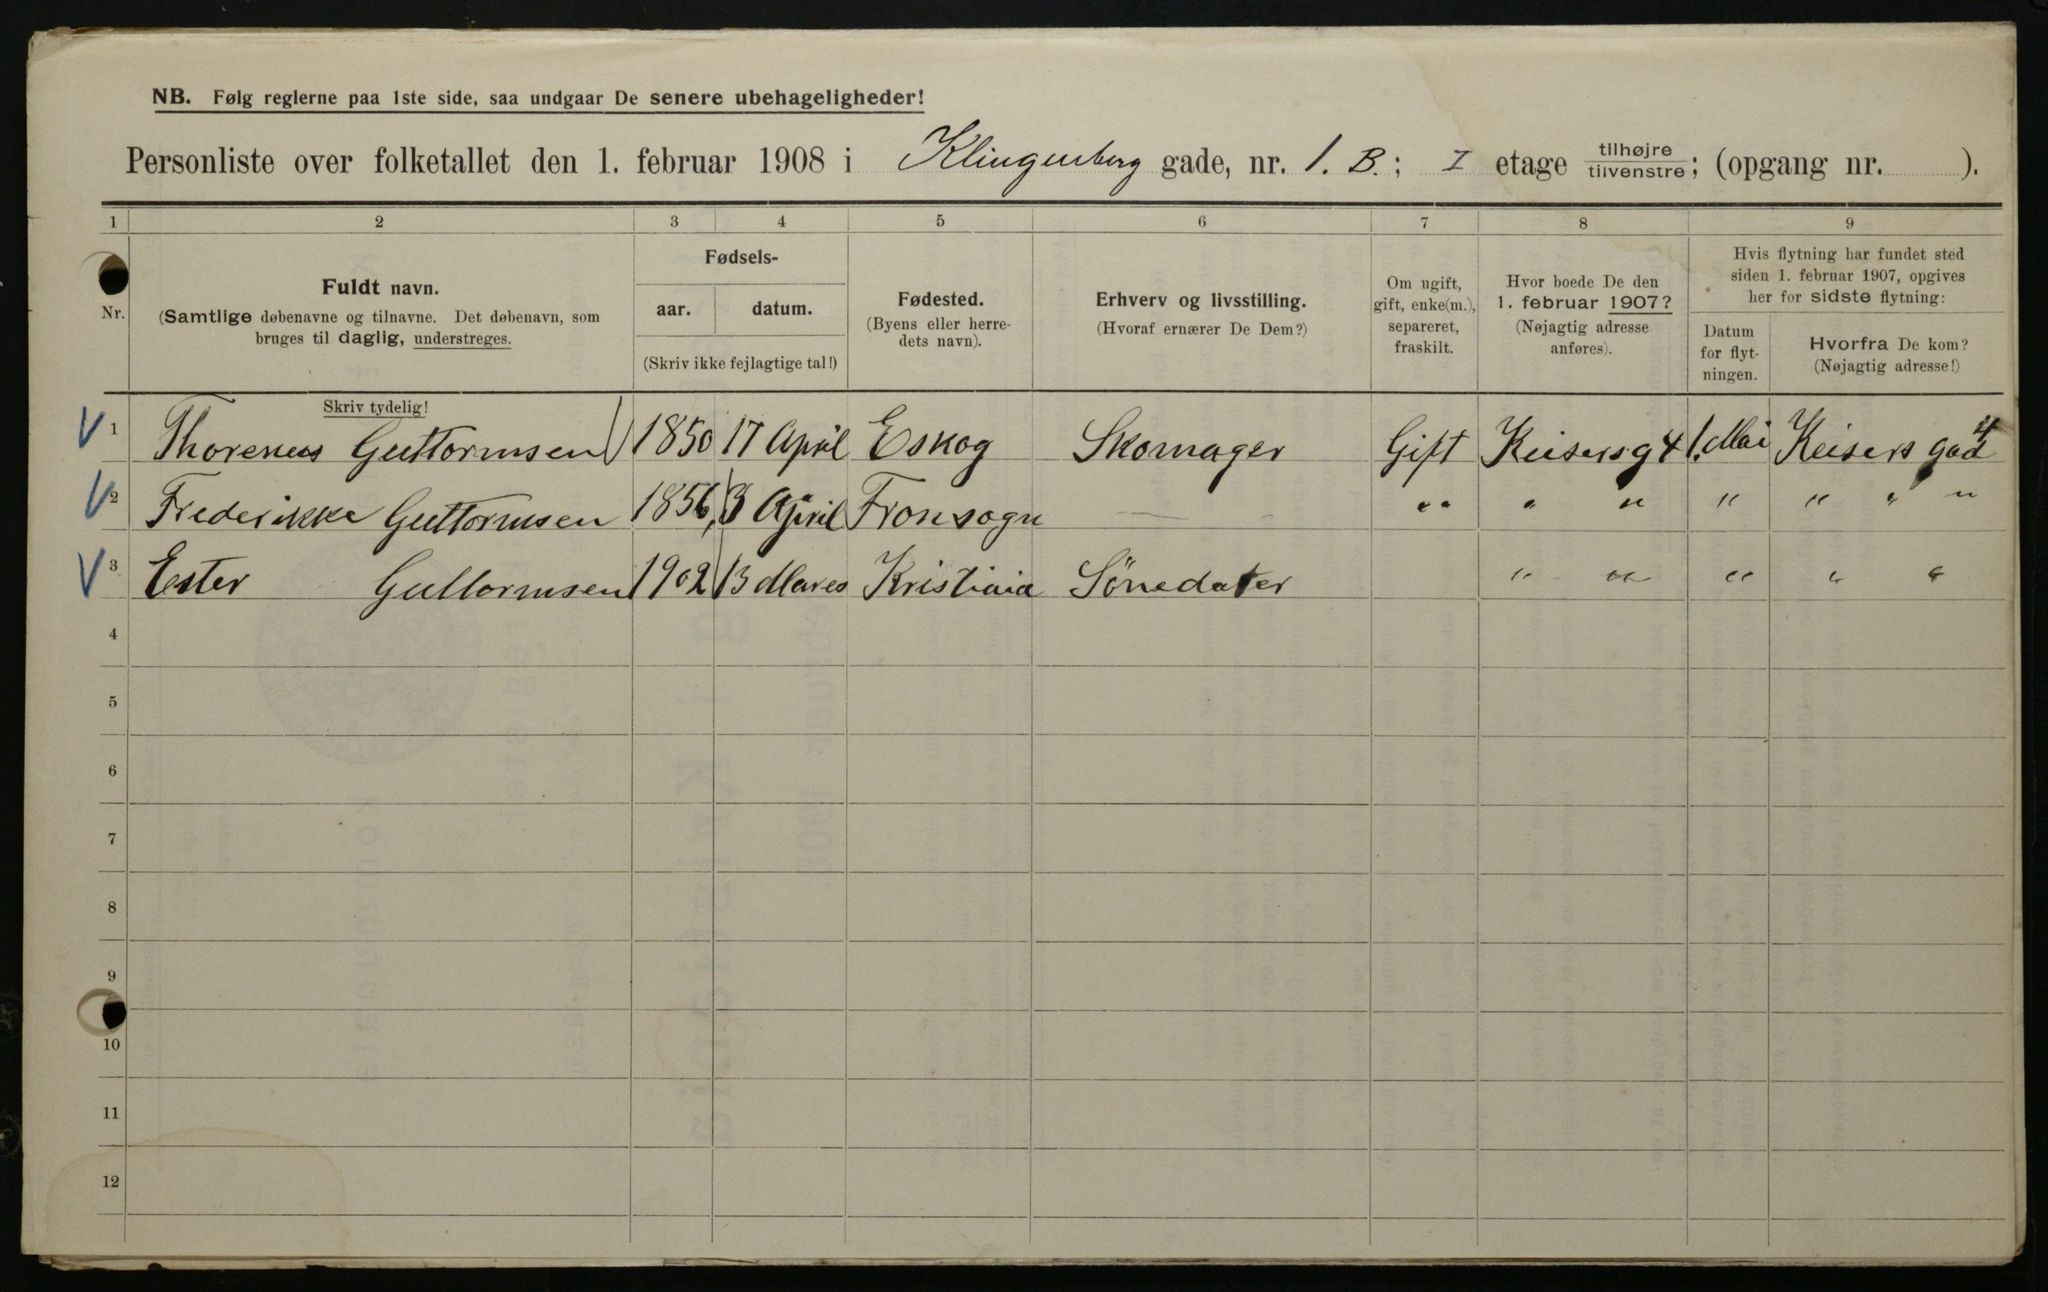 NB. Følg reglerne paa 1ste side, saa undgaar De senere ubehageligheder!
Personliste over folketallet den 1. februar 1908 i Klingenberg gade, nr. 1. B.; I etage tilhøjre/tilvenstre; (opgang nr. ).
1 2 3 4 5 6 7 8 9
Nr.
Fuldt navn.
(Samtlige døbenavne og tilnavne. Det døbenavn, som
bruges til daglig, understreges.
Skriv tydelig!
Fødsels-
aar. datum.
(Skriv ikke fejlagtige tal!)
Fødested.
(Byens eller herre-
dets navn).
Erhverv og livsstilling.
(Hvoraf ernærer De Dem?)
Om ugift,
gift, enke(m.),
separeret,
fraskilt.
Hvor boede De den
1. februar 1907?
(Nøjagtig adresse
anføres).
Hvis flytning har fundet sted
siden 1. februar 1907, opgives
her for sidste flytning:
Datum
for flyt-
ningen.
Hvorfra De kom?
(Nøjagtig adresse!)
1 Guttormsen 1850 17 April Eskog Skomager Gift Keisersg 4 1. Mai Keisers gad 4
2 Frederikke Guttormsen 1856 3 April Fronsogn — — - " " " " " " " "
3 Ester Guttormsen 1902 13 Mares Kristiaia Sönedater " " " " "
4
5
6
7
8
9
10
11
12